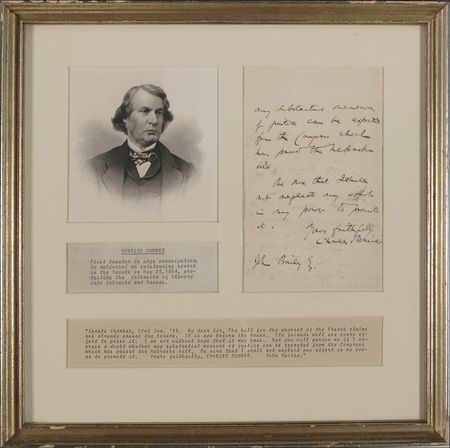 any substantial measure
of justice can be expected
from the Congress which
has passed the Nebraska
bill.
Be sure that I shall
not neglect any effort
in my power to promote
it.
Yours faithfully
Charles Sumner
John Bailey
CHARLES SUMNER
First Senator to urge emancipation.
He delivered an outstanding speech
in the Senate on May 25, 1854, pro-
testing the extension of Slavery
into Nebraska and Kansas.
"Senate Chamber, 22nd Jan. '55. My dear Sir, The bill for the payment of the French claims
has already passed the Senate. It is now before the House. Its friends will use every ef-
fort to press it. I am not without hope that it may pass. But you will pardon me if I ex-
press a doubt whether any substantial measure of justice can be expected from the Congress
which has passed the Nebraska bill. Be sure that I shall not neglect any effort in my pow-
er to promote it. Yours faithfully, CHARLES SUMNER. John Bailey."